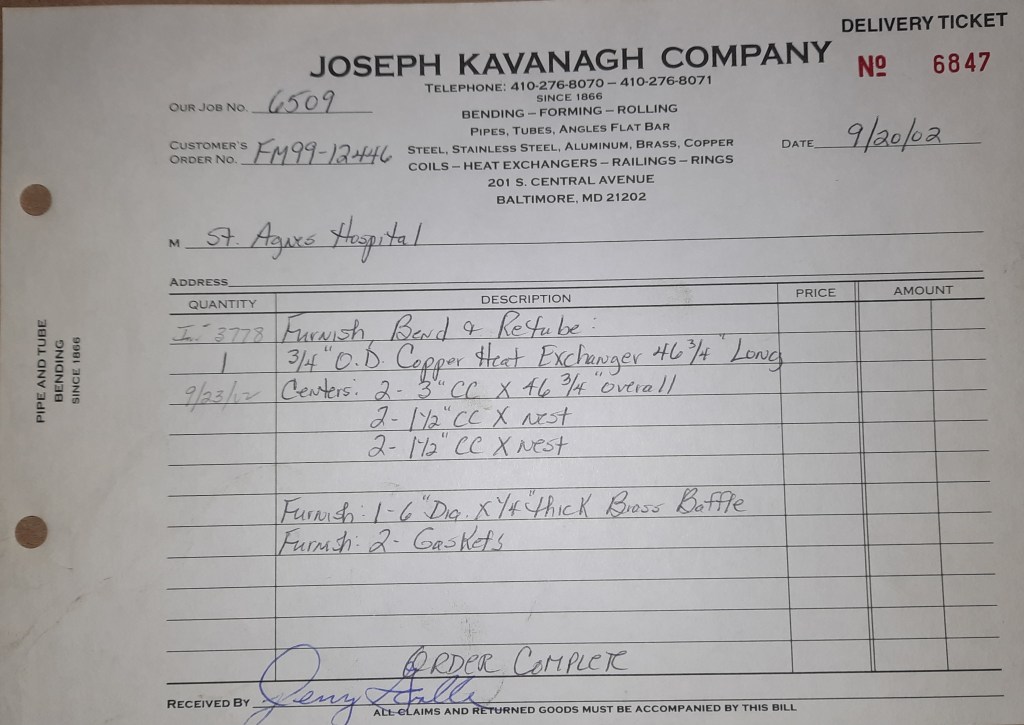 DELIVERY TICKET
JOSEPH KAVANAGH COMPANY
Nº 6847
TELEPHONE: 410-276-8070 – 410-276-8071
SINCE 1866
OUR JOB NO. 6509
BENDING – FORMING – ROLLING
PIPES, TUBES, ANGLES FLAT BAR
CUSTOMER'S
ORDER NO. FM99-12446
STEEL, STAINLESS STEEL, ALUMINUM, BRASS, COPPER
DATE 9/20/02
COILS – HEAT EXCHANGERS – RAILINGS – RINGS
201 S. CENTRAL AVENUE
BALTIMORE, MD 21202
M St. Agnes Hospital
ADDRESS
QUANTITY DESCRIPTION PRICE AMOUNT
3778 Furnish, Bend & Retube:
1 3/4" O.D. Copper Heat Exchanger 46 3/4" Long
9/23/02 Centers: 2- 3" CC X 46 3/4" overall
2- 1 1/2" CC X Nest
2- 1 1/2" CC X Nest
Furnish: 1-6" Dia. X 1/4" thick Brass Baffle
Furnish: 2- Gaskets
ORDER COMPLETE
RECEIVED BY Jerry
ALL CLAIMS AND RETURNED GOODS MUST BE ACCOMPANIED BY THIS BILL
PIPE AND TUBE
BENDING
SINCE 1866